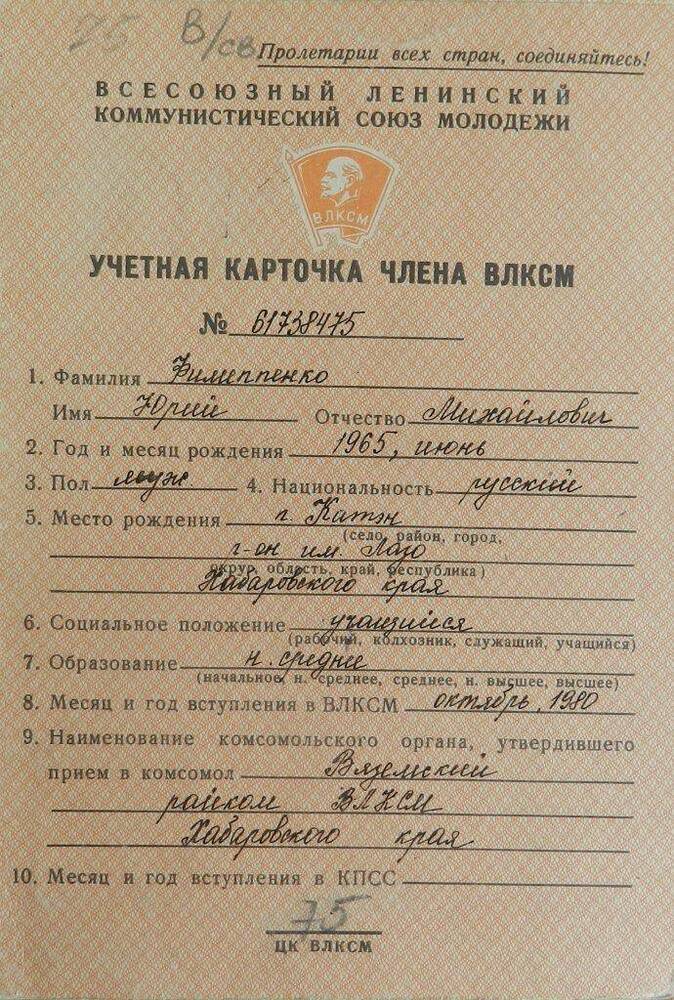 75 В/св
Пролетарии всех стран, соединяйтесь!
ВСЕСОЮЗНЫЙ ЛЕНИНСКИЙ
КОММУНИСТИЧЕСКИЙ СОЮЗ МОЛОДЕЖИ
ВЛКСМ
УЧЕТНАЯ КАРТОЧКА ЧЛЕНА ВЛКСМ
№ 61738475
1. Фамилия Филиппенко
Имя Юрий Отчество Михайлович
2. Год и месяц рождения 1965, июнь
3. Пол муж 4. Национальность русский
5. Место рождения п. Катэн
(село, район, город,
р-он им. Лазо
округ, область, край, республика)
Хабаровского края
6. Социальное положение учащийся
(рабочий, колхозник, служащий, учащийся)
7. Образование н. средне
(начальное, н. среднее, среднее, н. высшее, высшее)
8. Месяц и год вступления в ВЛКСМ октябрь, 1980
9. Наименование комсомольского органа, утвердившего
прием в комсомол Вяземский
райком ВЛКСМ
Хабаровского края
10. Месяц и год вступления в КПСС
75
ЦК ВЛКСМ